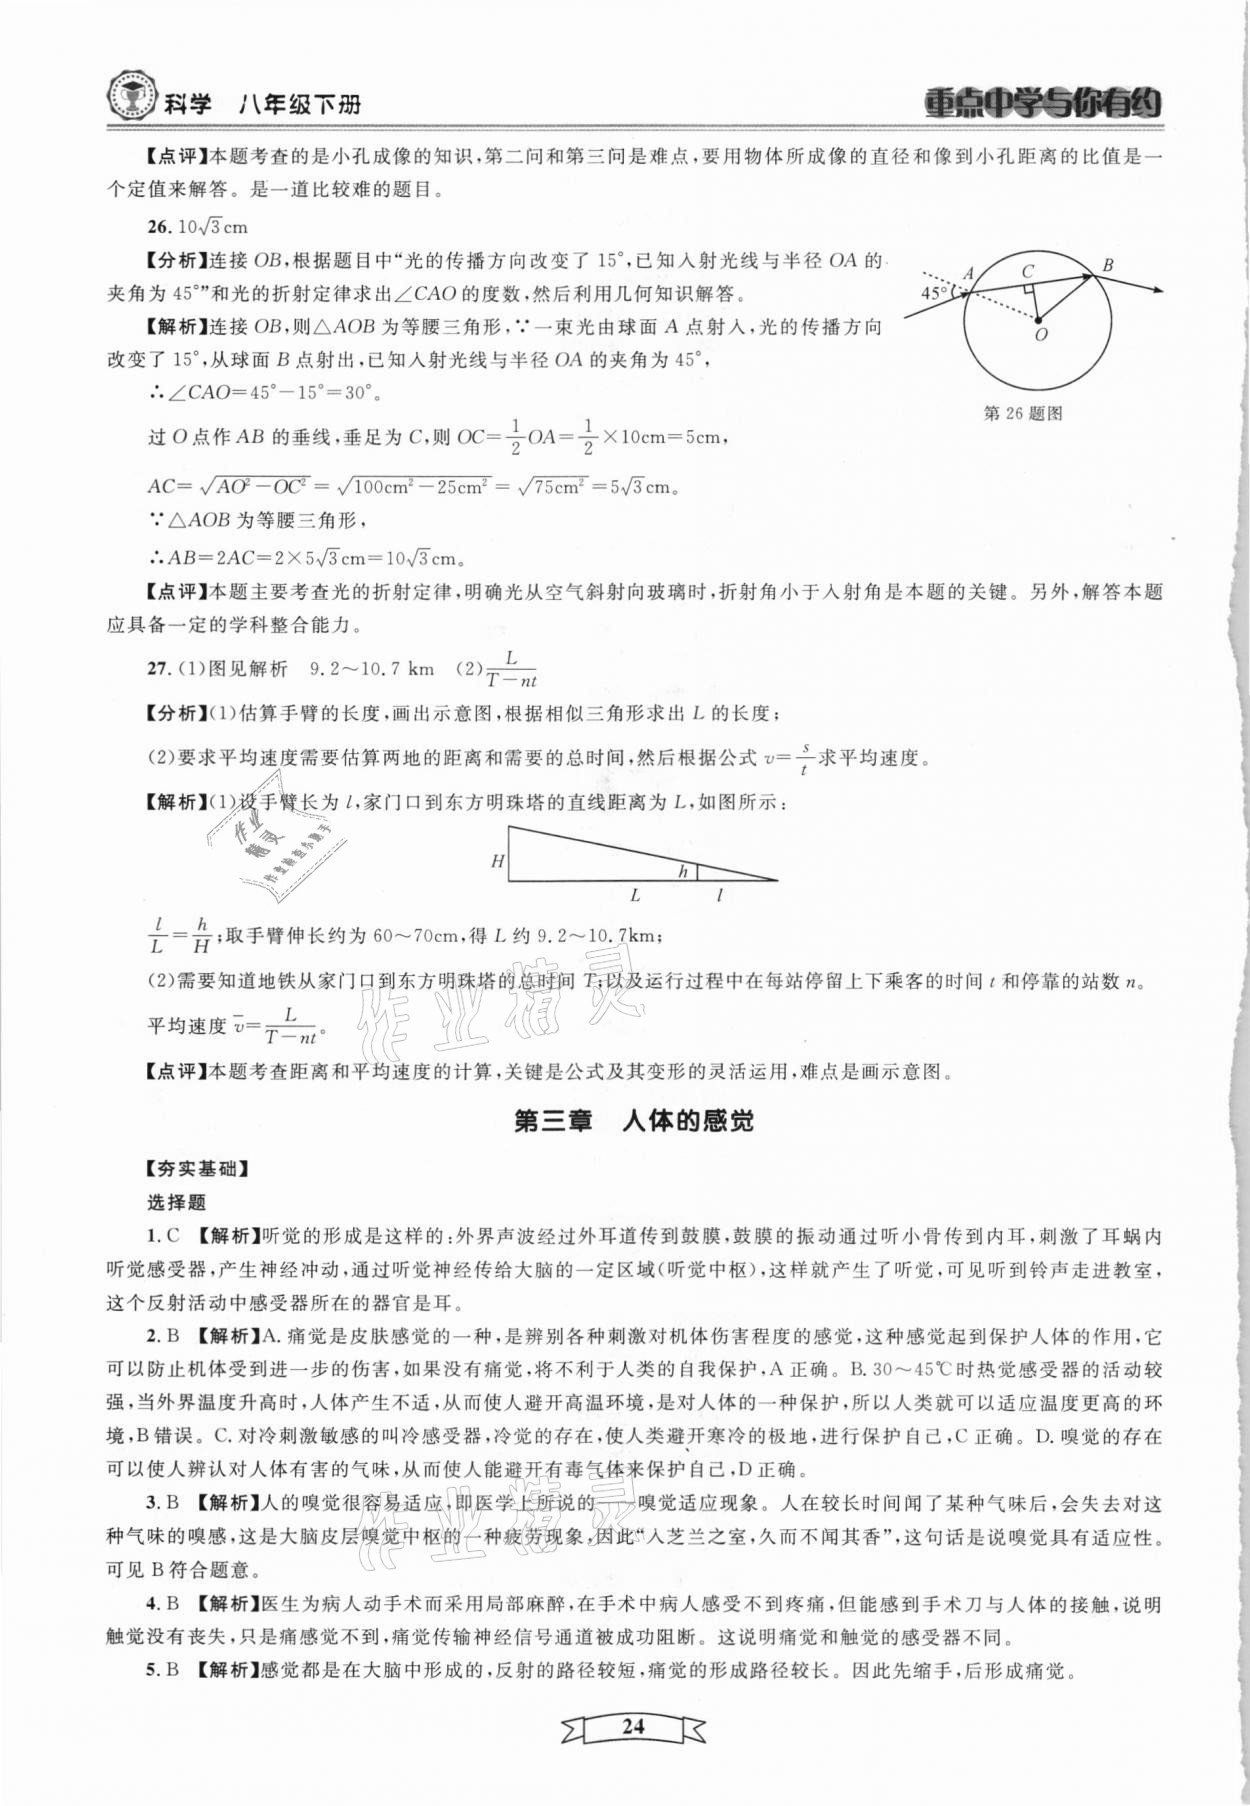 科学 八年级下册
重点中学与你有约
【点评】本题考查的是小孔成像的知识,第二问和第三问是难点,要用物体所成像的直径和像到小孔距离的比值是一
个定值来解答。是一道比较难的题目。
26. 10√3cm
【分析】连接 OB,根据题目中“光的传播方向改变了 15°,已知入射光线与半径 OA 的
夹角为 45°”和光的折射定律求出∠CAO 的度数,然后利用几何知识解答。
【解析】连接 OB,则△AOB 为等腰三角形,∵一束光由球面 A 点射入,光的传播方向
改变了 15°,从球面 B 点射出,已知入射光线与半径 OA 的夹角为 45°,
∴∠CAO=45°−15°=30°。
A
C
B
45°
O
第 26 题图
过 O 点作 AB 的垂线,垂足为 C,则 OC=1/2OA=1/2×10cm=5cm,
AC=√(AO²−OC²)=√(100cm²−25cm²)=√(75cm²)=5√3cm。
∵△AOB 为等腰三角形,
∴AB=2AC=2×5√3cm=10√3cm。
【点评】本题主要考查光的折射定律,明确光从空气斜射向玻璃时,折射角小于入射角是本题的关键。另外,解答本题
应具备一定的学科整合能力。
27. (1)图见解析 9.2～10.7 km (2)L/(T−nt)
【分析】(1)估算手臂的长度,画出示意图,根据相似三角形求出 L 的长度;
(2)要求平均速度需要估算两地的距离和需要的总时间,然后根据公式 v=s/t求平均速度。
【解析】(1)设手臂长为 l,家门口到东方明珠塔的直线距离为 L,如图所示:
H
h
L
l
l/L=h/H;取手臂伸长约为 60～70cm,得 L 约 9.2～10.7km;
(2)需要知道地铁从家门口到东方明珠塔的总时间 T;以及运行过程中在每站停留上下乘客的时间 t 和停靠的站数 n。
平均速度 v̄=L/(T−nt)。
【点评】本题考查距离和平均速度的计算,关键是公式及其变形的灵活运用,难点是画示意图。
第三章 人体的感觉
【夯实基础】
选择题
1. C 【解析】听觉的形成是这样的:外界声波经过外耳道传到鼓膜,鼓膜的振动通过听小骨传到内耳,刺激了耳蜗内
听觉感受器,产生神经冲动,通过听觉神经传给大脑的一定区域(听觉中枢),这样就产生了听觉,可见听到铃声走进教室,
这个反射活动中感受器所在的器官是耳。
2. B 【解析】A. 痛觉是皮肤感觉的一种,是辨别各种刺激对机体伤害程度的感觉,这种感觉起到保护人体的作用,它
可以防止机体受到进一步的伤害,如果没有痛觉,将不利于人类的自我保护,A 正确。B. 30～45℃时热觉感受器的活动较
强,当外界温度升高时,人体产生不适,从而使人避开高温环境,是对人体的一种保护,所以人类就可以适应温度更高的环
境,B错误。C. 对冷刺激敏感的叫冷感受器,冷觉的存在,使人类避开寒冷的极地,进行保护自己,C 正确。D. 嗅觉的存在
可以使人辨认对人体有害的气味,从而使人能避开有毒气体来保护自己,D 正确。
3. B 【解析】人的嗅觉很容易适应,即医学上所说的——嗅觉适应现象。人在较长时间闻了某种气味后,会失去对这
种气味的嗅感,这是大脑皮层嗅觉中枢的一种疲劳现象,因此“入芝兰之室,久而不闻其香”,这句话是说嗅觉具有适应性。
可见 B 符合题意。
4. B 【解析】医生为病人动手术而采用局部麻醉,在手术中病人感受不到疼痛,但能感到手术刀与人体的接触,说明
触觉没有丧失,只是痛感觉不到,痛觉传输神经信号通道被成功阻断。这说明痛觉和触觉的感受器不同。
5. B 【解析】感觉都是在大脑中形成的,反射的路径较短,痛觉的形成路径较长。因此先缩手,后形成痛觉。
24
作业精灵
作业检查小助手
作业精灵
作业精灵